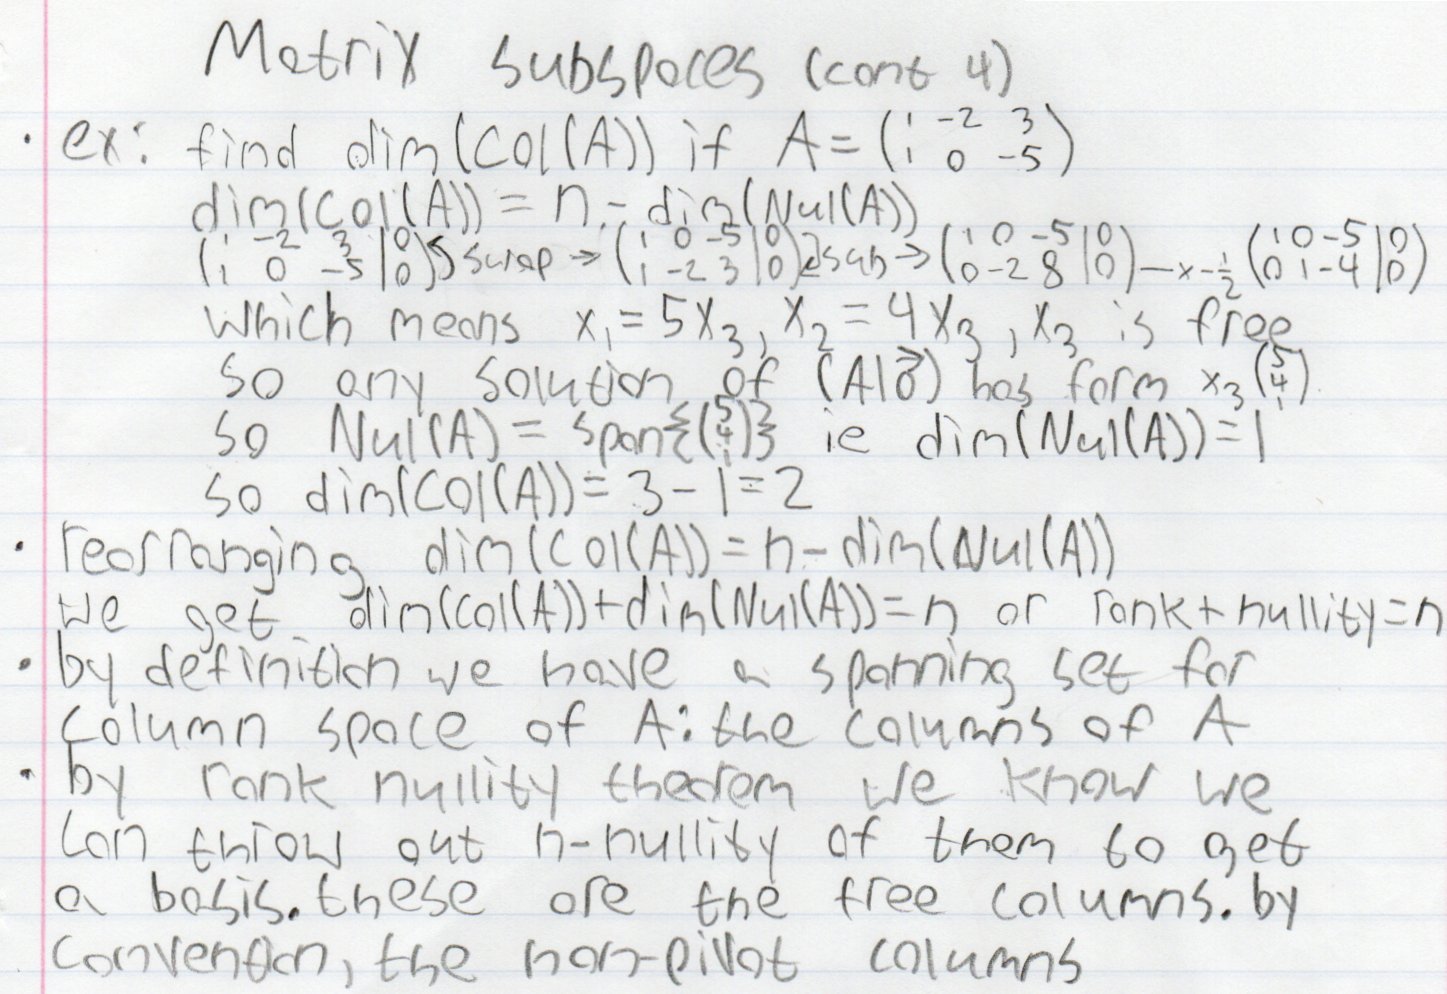 Matrix subspaces (cont 4)
· ex: find dim(Col(A)) if A = (1 -2 3 / 1 0 -5)
dim(Col(A)) = n - dim(Nul(A))
(1 -2 3 | 0 / 1 0 -5 | 0) swap → (1 0 -5 | 0 / 1 -2 3 | 0) sub → (1 0 -5 | 0 / 0 -2 8 | 0) — x -1/2 (1 0 -5 | 0 / 0 1 -4 | 0)
which means x₁ = 5x₃, x₂ = 4x₃, x₃ is free
so any solution of (A|0⃗) has form x₃(5 / 4 / 1).
so Nul(A) = span{(5 / 4 / 1)} ie dim(Nul(A)) = 1
so dim(Col(A)) = 3 - 1 = 2
· rearranging dim(Col(A)) = n - dim(Nul(A))
we get dim(Col(A)) + dim(Nul(A)) = n or rank + nullity = n
· by definition we have a spanning set for
column space of A: the columns of A
· by rank nullity theorem we know we
can throw out n-nullity of them to get
a basis. these are the free columns. by
convention, the non-pivot columns